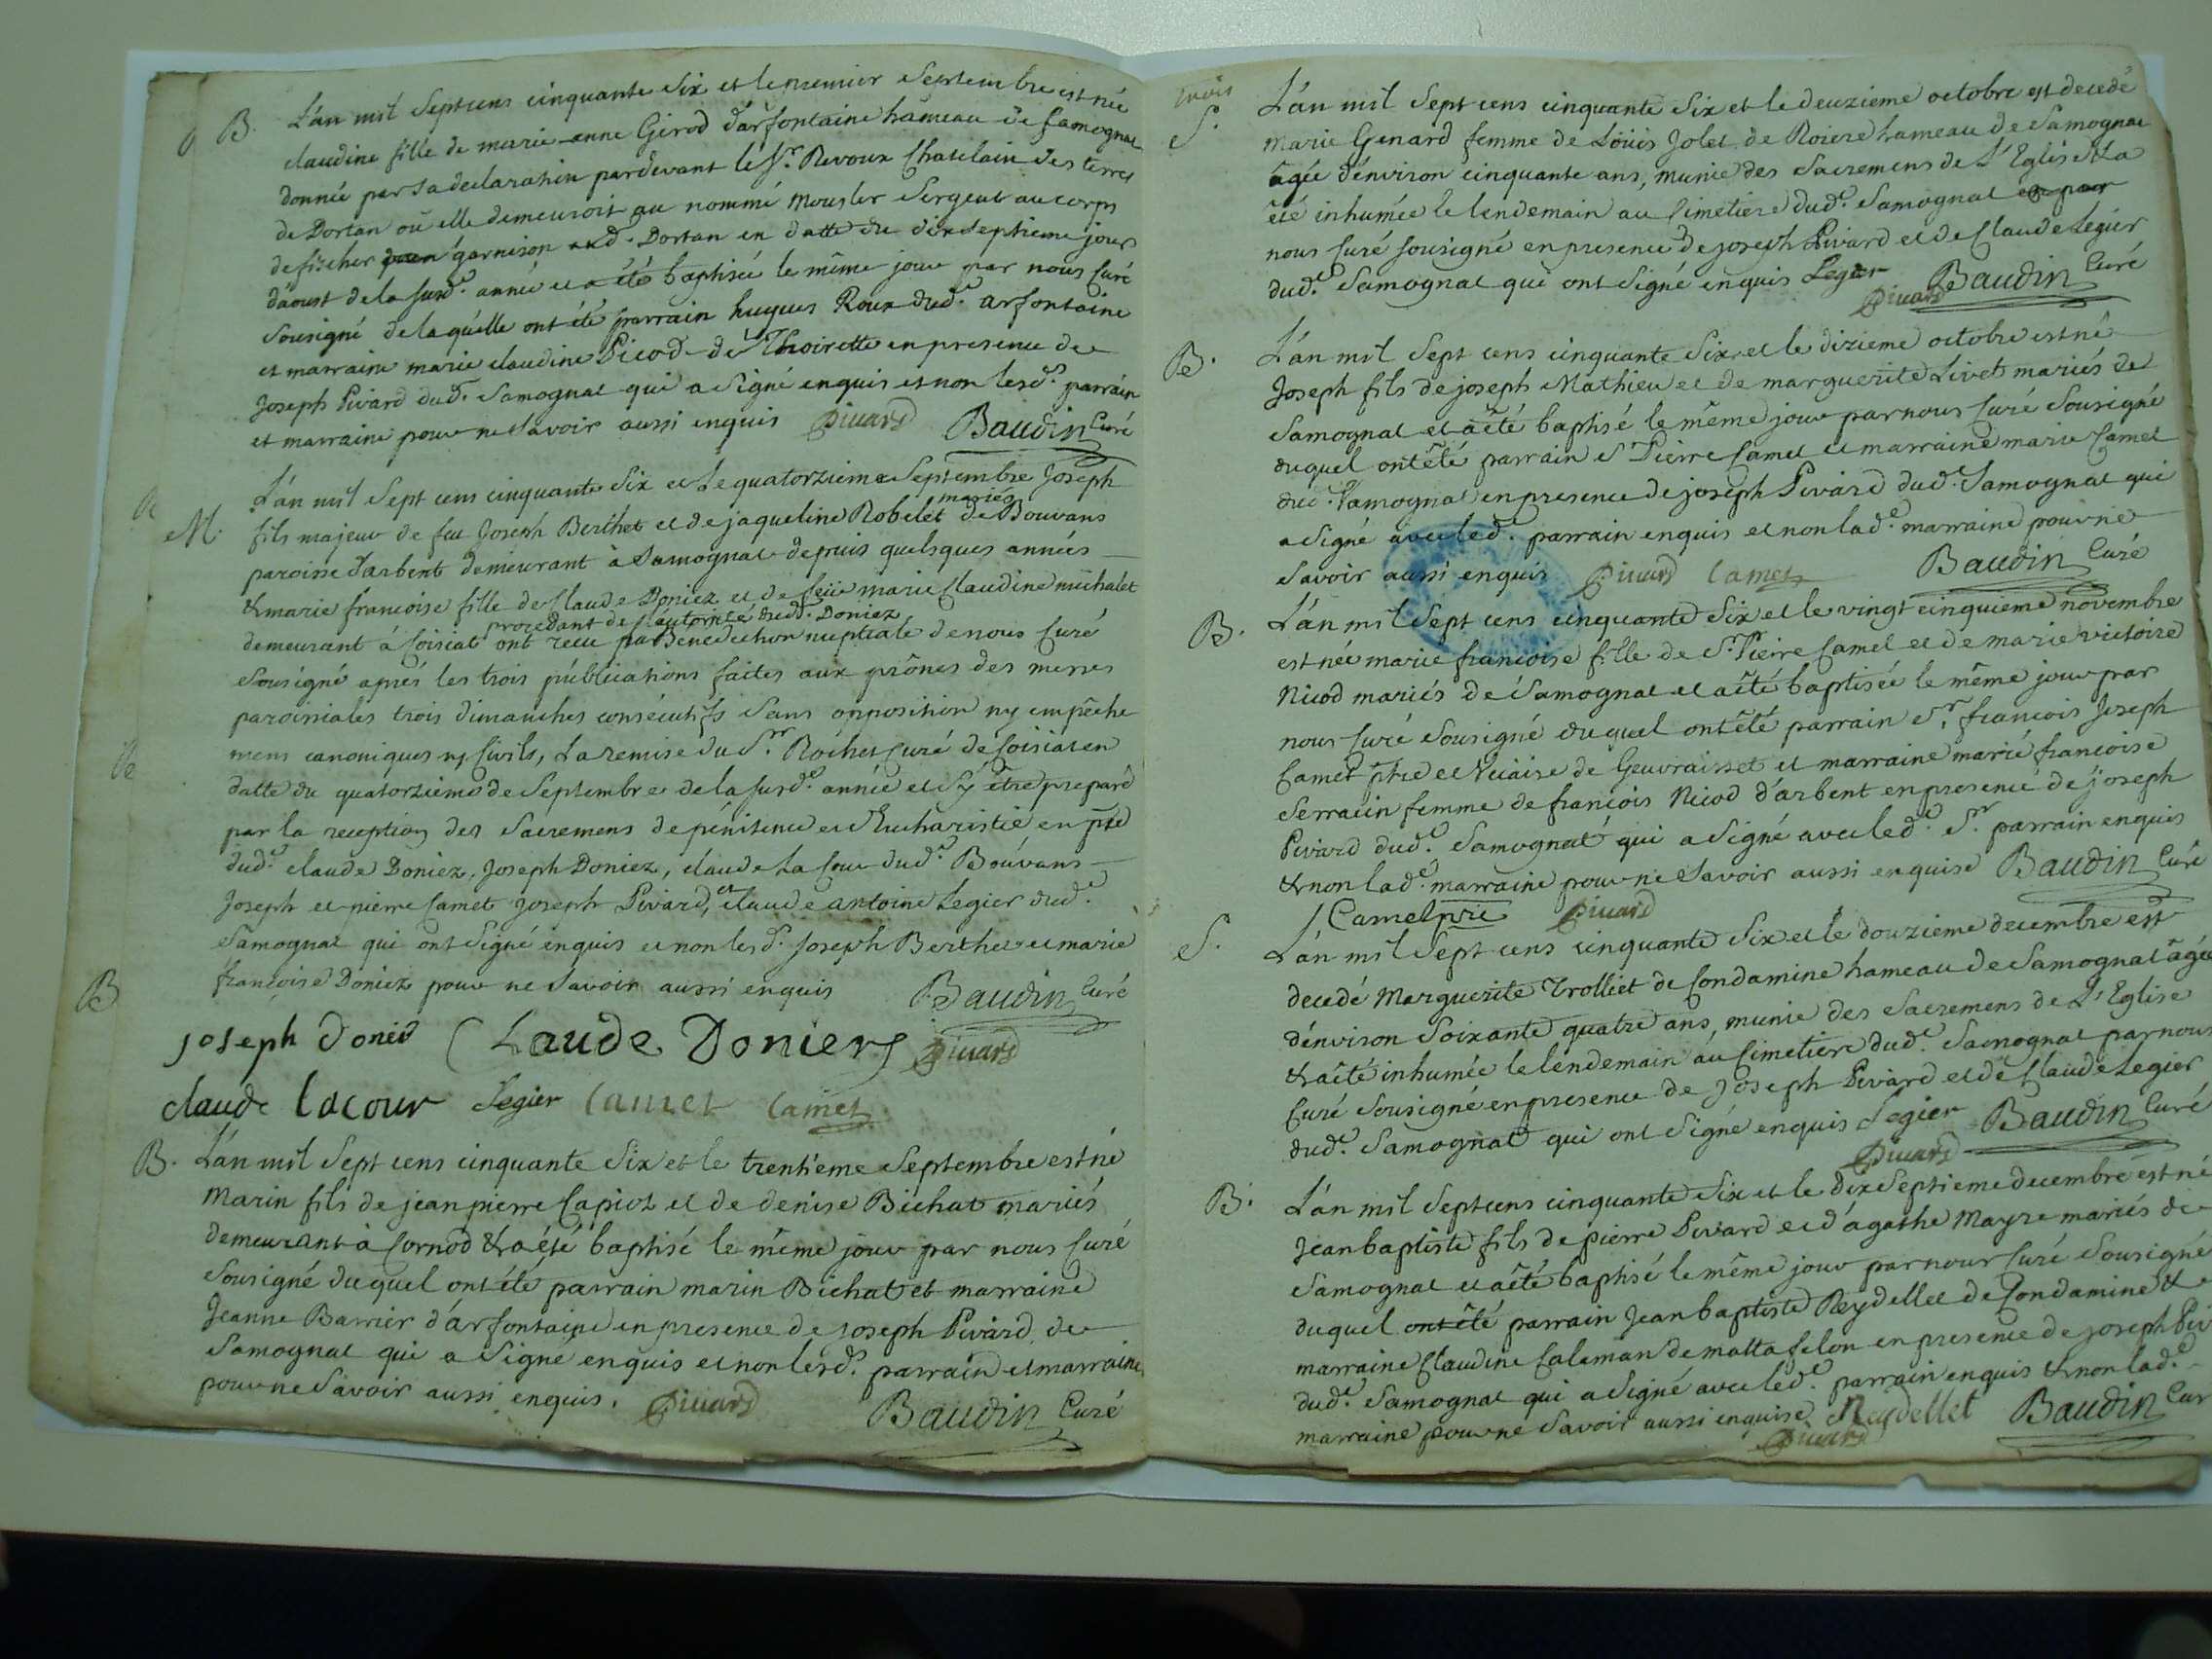 B. L'an mil Septcens cinquante Six et le premier Septembre est née
claudine fille de marie-anne Girod d'arfontaine hameau de Samognat
donnée par Sa declaration pardevant le Sr. Revoux Chatelain des terres
de Dortan où elle demeuroit au nommé Mousler Sergent au corps
de fischer en garnison aud. Dortan en datte du dixseptieme jour
d'aoust de la susd.e année et a été baptisée le même jour par nous Curé
Sousigné de laquelle ont été parrain hugues Roux dud.e arfontaine
et marraine marie claudine Picod de Thoirette en presence de
Joseph Pivard dud.e Samognat qui a Signé enquis et non lesd.s parrain
et marraine pour ne Savoir aussi enquis Pivard Baudin Curé
M. L'an mil Sept cens cinquante Six et le quatorzieme Septembre Joseph
fils majeur de feu Joseph Berthet et de jaqueline Robelet mariés de Bouvans
paroisse d'arbent demeurant à Samognat depuis quelsques années
& marie francoise fille de Claude Doniez et de feüe marie Claudine michalet
procedant de l'autorité dud. Doniez
demeurant à Coisiat ont recu la Benediction nuptiale de nous Curé
Sousigné aprés les trois publications faites aux prônes des messes
paroissiales trois dimanches consécutifs Sans opposition ny empêche
mens canoniques ny Civils, La remise du Sr. Rochet Curé de Coisiat en
datte du quatorzieme de Septembre de la susd.e année et S'y être preparé
par la reception des Sacremens de pénitence et d'Eucharistie en pnce
dud.e claude Doniez, Joseph Doniez, claude La Cour dud.e Bouvans
Joseph et pierre Camet Joseph Pivard, et claude antoine Legier dud.e
Samognat qui ont Signé enquis et non lesd.s Joseph Berthet et marie
françoise Doniez pour ne Savoir aussi enquis Baudin Curé
joseph Doniés Claude Doniers Pivard
claude lacour Legier Camet Camet
B. L'an mil Sept cens cinquante Six et le trentieme Septembre est né
Marin fils de jean pierre Capioz et de denise Bichat mariés
demeurant à Cornod & a été baptisé le même jour par nous Curé
Sousigné duquel ont été parrain marin Bichat et marraine
Jeanne Barrier d'arfontaine en presence de Joseph Pivard de
Samognat qui a Signé enquis et non lesd.s parrain et marraine
pour ne Savoir aussi enquis. Pivard Baudin Curé
S. L'an mil Sept cens cinquante Six et le deuzieme octobre est decedé
Marie Genard femme de Louis Jolet de Roiere hameau de Samognat
agée d'environ cinquante ans, munie des Sacremens de L'Eglise & a
été inhumée le lendemain au Cimetiere dud.e Samognat par
nous Curé sousigné en presence de joseph Pivard et de Claude Legier
dud.e Samognat qui ont Signé enquis Legier Pivard Baudin Curé
B. L'an mil Sept cens cinquante Six et le dizieme octobre est né
Joseph fils de joseph Mathieu et de marguerite Livet mariés de
Samognat et a été baptisé le même jour par nous Curé Sousigné
duquel ont été parrain Sr Pierre Camet et marraine marie Camet
dud. Samognat en presence de joseph Pivard dud.e Samognat qui
a Signé avec led.e parrain enquis et non lad.e marraine pour ne
Savoir aussi enquis Pivard Camet Baudin Curé
B. L'an mil Sept cens cinquante Six et le vingt cinquieme novembre
est née marie francoise fille de Sr. Pierre Camet et de marie victoire
Nicod mariés de Samognat et a été baptisée le même jour par
nous Curé Sousigné duquel ont été parrain Sr. francois Joseph
Camet ptre et Vicaire de Gevraisset et marraine marie françoise
Serracin femme de francois Nicod d'arbent en presence de joseph
Pivard dud.e Samognat qui a Signé avec led.e Sr. parrain enquis
& non lad.e marraine pour ne Savoir aussi enquise Baudin Curé
Camet ptre Pivard
S. L'an mil Sept cens cinquante Six et le douzieme decembre est
decedé Marguerite Trolliet de Condamine hameau de Samognat agée
d'environ Soixante quatre ans, munie des Sacremens de L'Eglise
& a été inhumée le lendemain au Cimetiere dud.e Samognat par nous
Curé Sousigné en presence de Joseph Pivard et de Claude Legier
dud.e Samognat qui ont Signé enquis Legier Pivard Baudin Curé
B. L'an mil Septcens cinquante Six et le dixseptieme decembre est né
Jean baptiste fils de pierre Pivard et d'agathe Mayre mariés de
Samognat et a été baptisé le même jour par nous Curé Sousigné
duquel ont été parrain Jean baptiste Reydellet de Condamine &
marraine Claudine Caleman de mattafelon en presence de joseph Piv
dud.e Samognat qui a Signé avec led.e parrain enquis & non lad.e
marraine pour ne Savoir aussi enquise Reydellet Pivard Baudin Cur